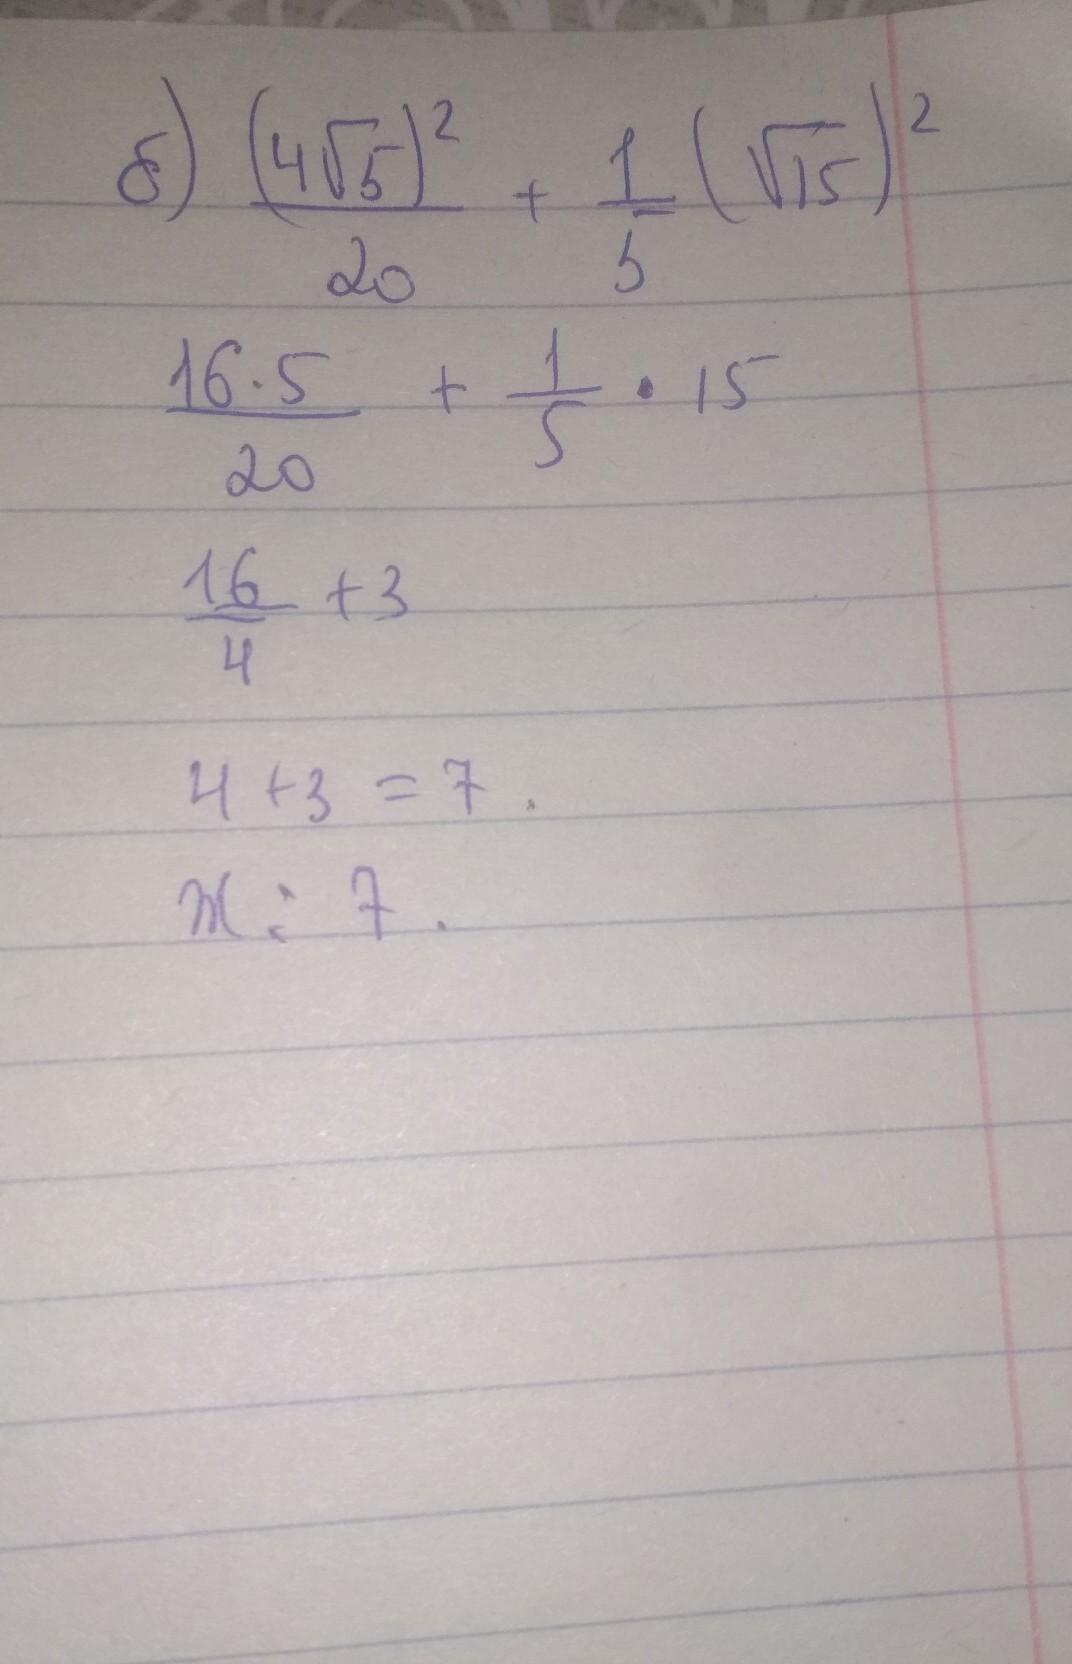 б) (4√5)²/20 + 1/5 (√15)²
16·5/20 + 1/5 · 15
16/4 + 3
4 + 3 = 7.
Ж: 7.